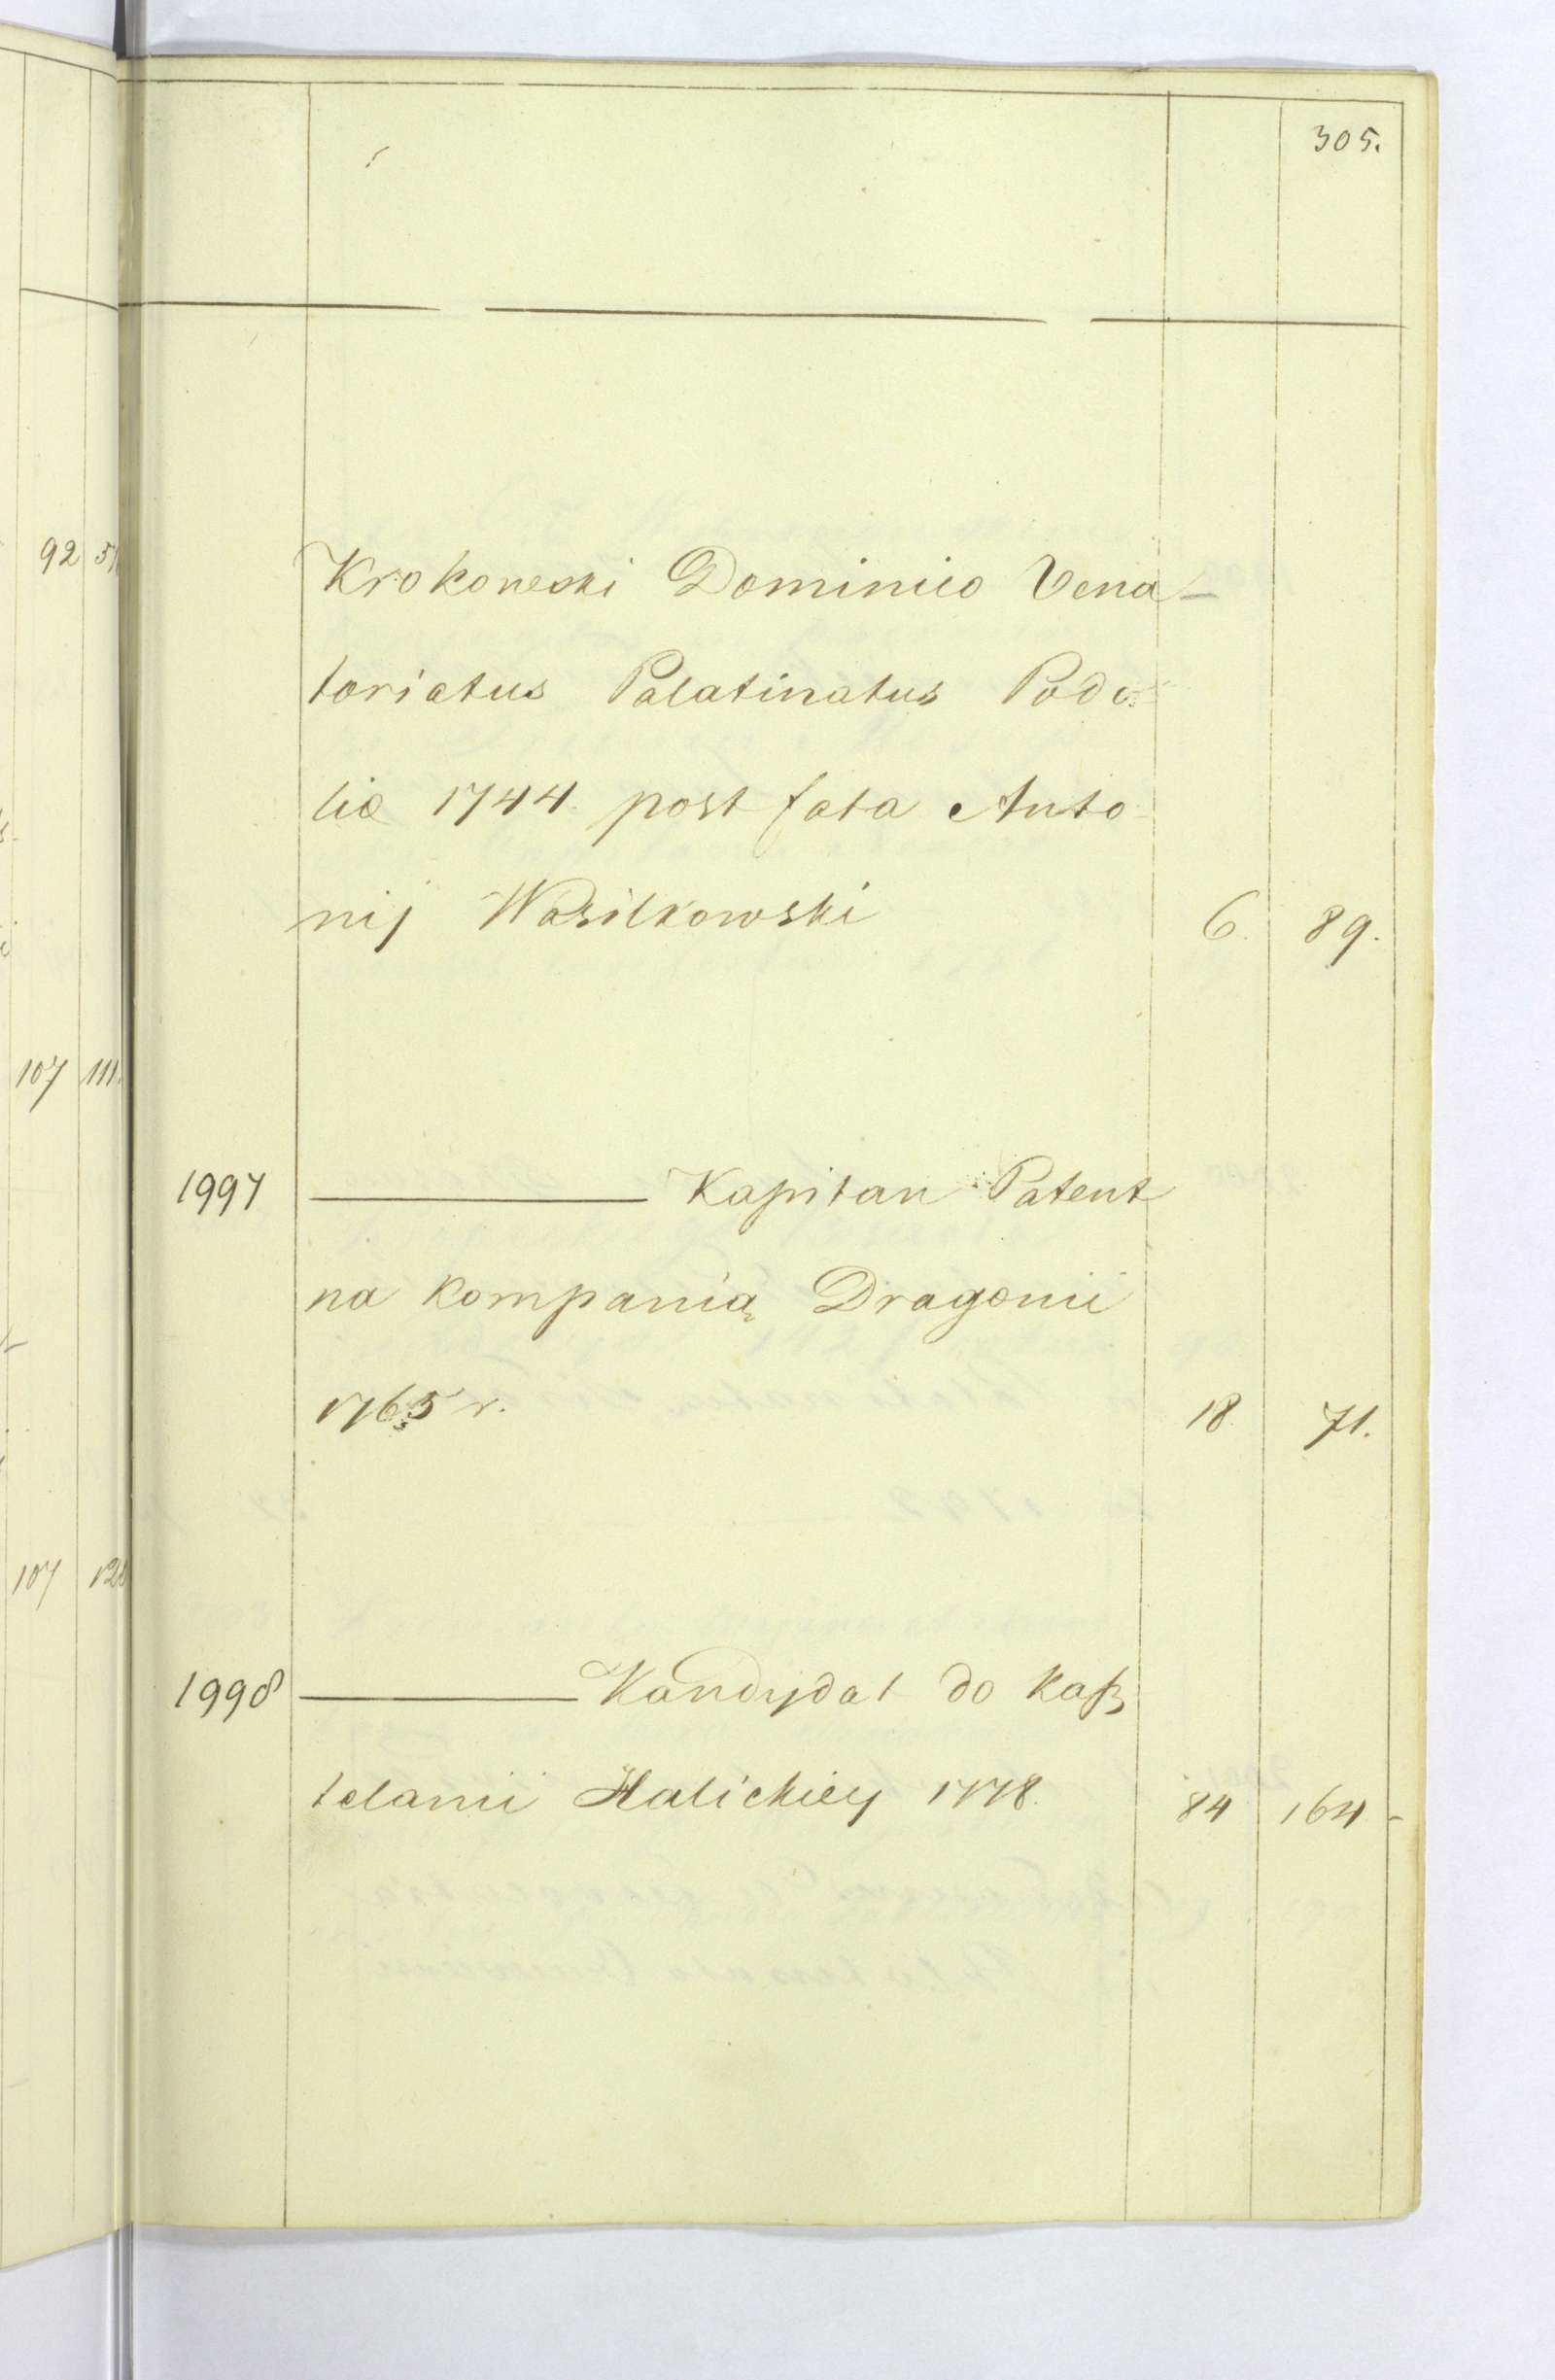 305.
92
Krokowski Dominico Vena-
toriatus Palatinatus Podo-
liæ 1744 post fata Anto
nij Wasilkowski 6. 89.
107 111.
1997 ——— Kapitan Patent
na kompanią Dragonii
1765 r. 18 71.
107
1998 ——— Kandydat do kaſz
telanii Halickiey 1778. 84 164